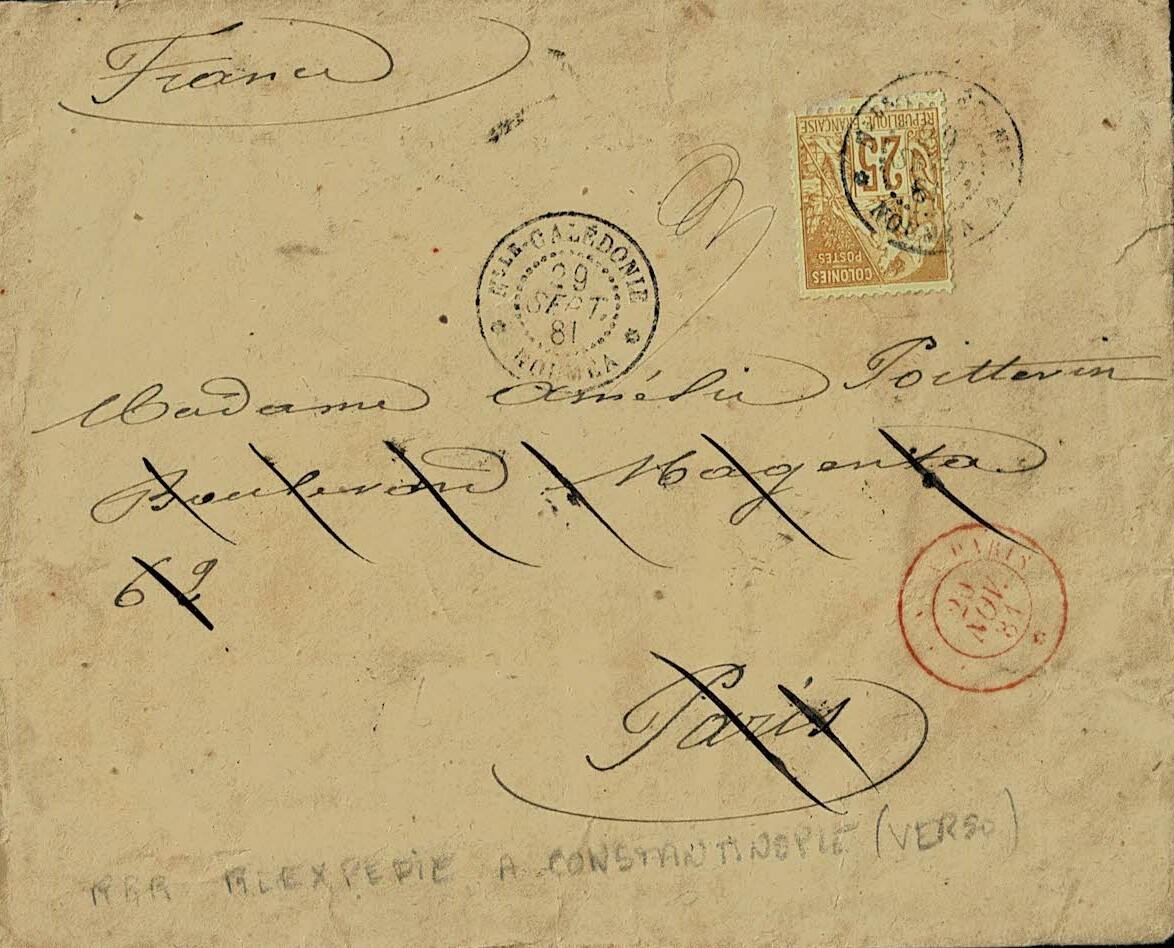 France
RÉPUBLIQUE FRANÇAISE
25
COLONIES
POSTES
NLLE-CALÉDONIE
29
SEPT.
81
NOUMÉA
NOUMÉA
Madame Amélie Poittevin
Boulevard Magenta
62
PARIS
NOV.
81
Paris
RRR REEXPEDIE A CONSTANTINOPLE (VERSO)